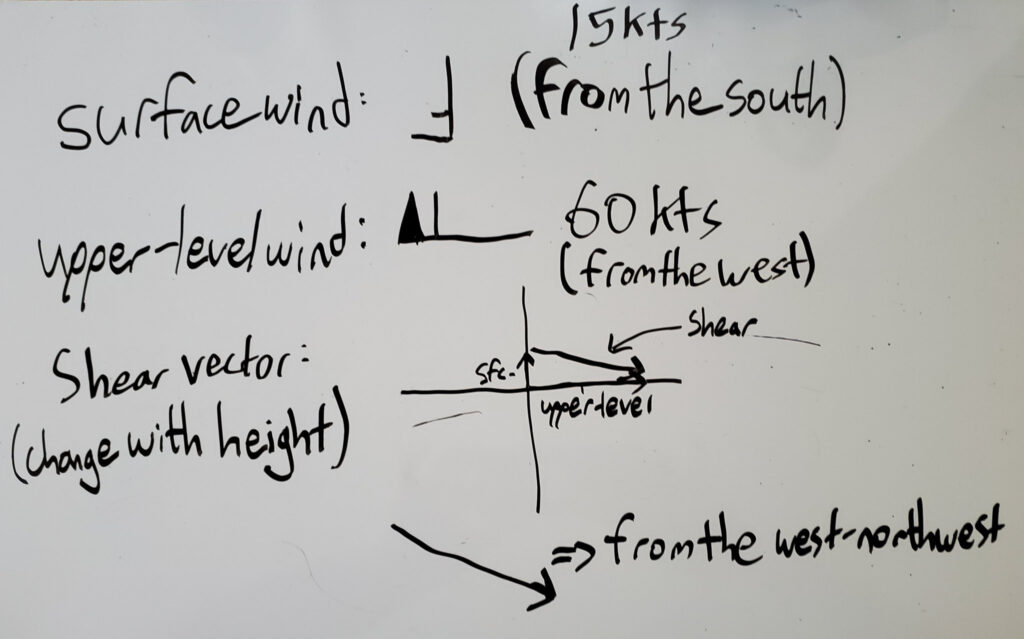 15kts
surface wind: (from the south)
upper-level wind: 60 kts
(from the west)
Shear
Shear vector:
sfc.
upper-level
(change with height)
=> from the west-northwest